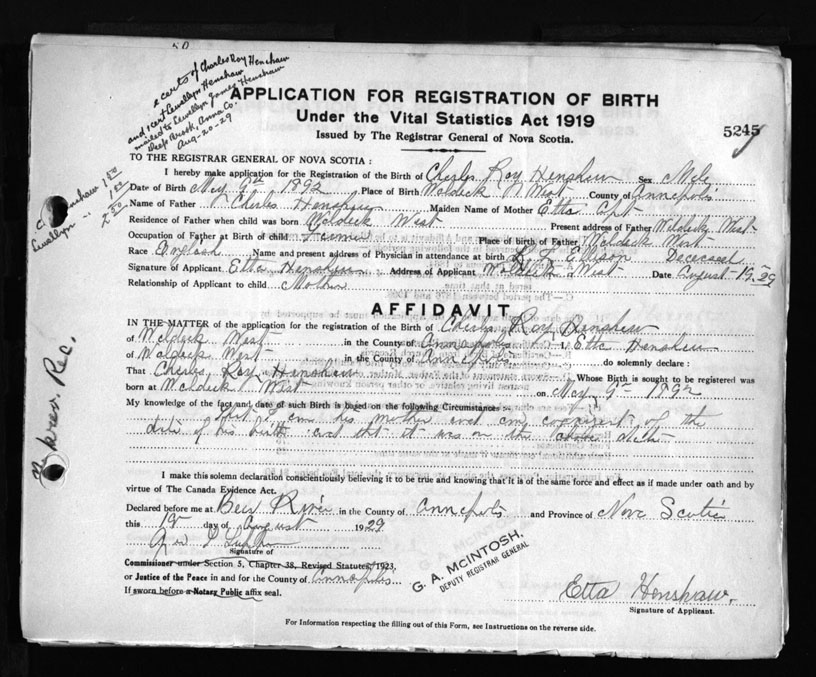 2 certs of Charles Roy Henshaw
and 1 cert Lewellyn Henshaw
mailed to Lewellyn James Henshaw
Deep Brook, Anna Co.
Aug-20-29
APPLICATION FOR REGISTRATION OF BIRTH
Under the Vital Statistics Act 1919
Issued by The Registrar General of Nova Scotia.
5245
TO THE REGISTRAR GENERAL OF NOVA SCOTIA :
I hereby make application for the Registration of the Birth of Charles Roy Henshaw Sex Male
Date of Birth May 9th 1892 Place of Birth Waldeck West County of Annapolis
Name of Father Charles Henshaw Maiden Name of Mother Etta
Residence of Father when child was born Waldeck West Present address of Father Waldeck West
Occupation of Father at Birth of child Farmer Place of birth of Father Waldeck West
Race English Name and present address of Physician in attendance at birth Ellison Deceased
Signature of Applicant Etta Henshaw Address of Applicant Waldeck West Date August 19 29
Relationship of Applicant to child Mother
AFFIDAVIT
IN THE MATTER of the application for the registration of the Birth of Charles Roy Henshaw
of Waldeck West in the County of Annapolis I, Etta Henshaw
of Waldeck West in the County of Annapolis do solemnly declare :
That Charles Roy Henshaw Whose Birth is sought to be registered was
born at Waldeck West on May 9th 1892
My knowledge of the fact and date of such Birth is based on the following Circumstances :-
that I am his mother and am cognizant of the
date of his birth and that it was on the above date
I make this solemn declaration conscientiously believing it to be true and knowing that it is of the same force and effect as if made under oath and by
virtue of The Canada Evidence Act.
Declared before me at Bear River in the County of Annapolis and Province of Nova Scotia
this 19 day of August 1929
Signature of
Commissioner under Section 5, Chapter 38, Revised Statutes, 1923,
or Justice of the Peace in and for the County of Annapolis
If sworn before a Notary Public affix seal.
G. A. McINTOSH,
DEPUTY REGISTRAR GENERAL
Etta Henshaw.
Signature of Applicant.
For Information respecting the filling out of this Form, see Instructions on the reverse side.